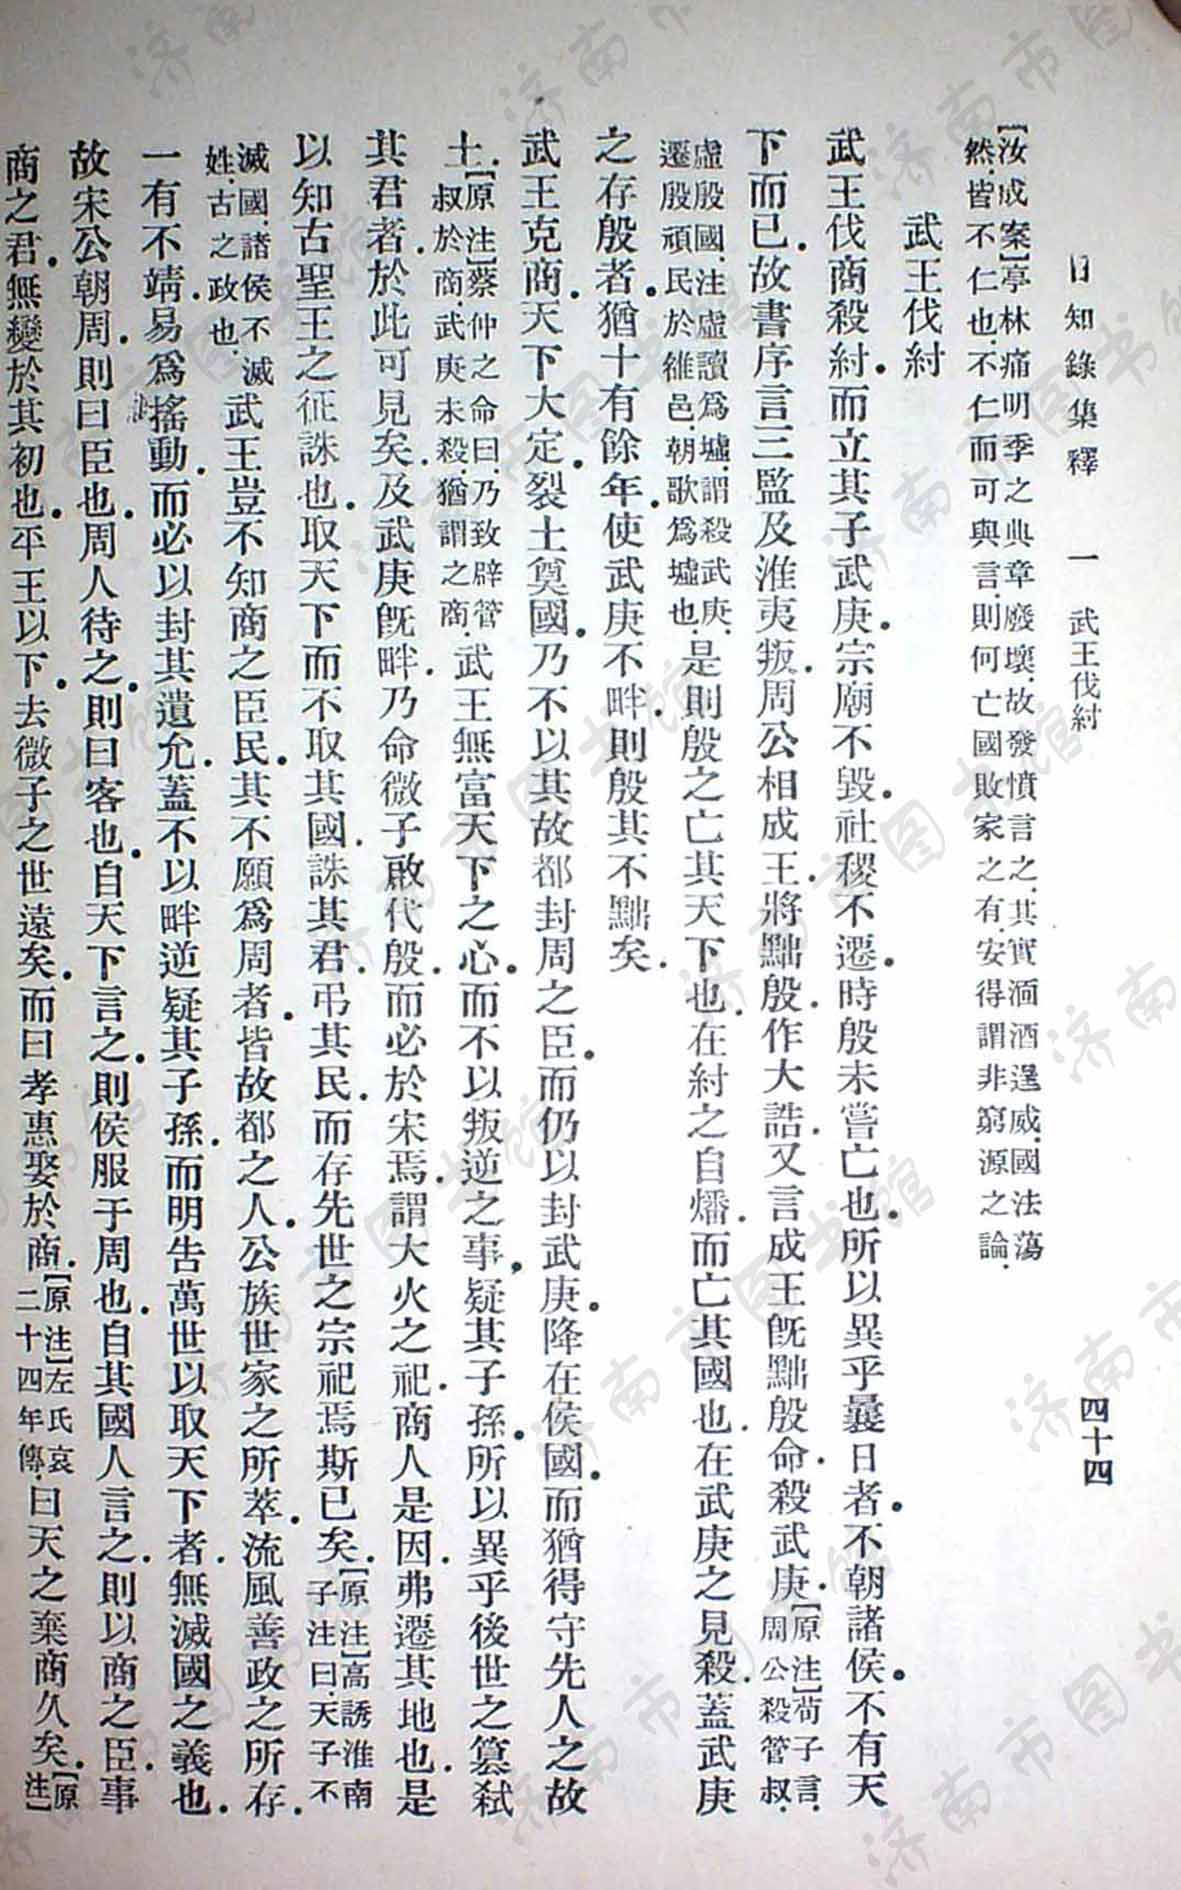 日知錄集釋　一　武王伐紂　四十四
【汝成案】亭林痛明季之典章廢壞.故發憤言之.其實湎酒逞威.國法蕩
然.皆不仁也.不仁而可與言.則何亡國敗家之有.安得謂非窮源之論.
武王伐紂
武王伐商殺紂.而立其子武庚.宗廟不毀.社稷不遷.時殷未嘗亡也.所以異乎曩日者.不朝諸侯.不有天
下而已.故書序言三監及淮夷叛.周公相成王.將黜殷.作大誥.又言成王旣黜殷命.殺武庚.【原注】荀子言.周公殺管叔.
虛殷國.注虛讀爲墟.謂殺武庚.遷殷頑民於雒邑.朝歌爲墟也.是則殷之亡其天下也.在紂之自燔.而亡其國也.在武庚之見殺.蓋武庚
之存殷者.猶十有餘年.使武庚不畔.則殷其不黜矣.
武王克商.天下大定.裂土奠國.乃不以其故都封周之臣.而仍以封武庚.降在侯國.而猶得守先人之故
土.【原注】蔡仲之命曰.乃致辟管叔於商.武庚未殺.猶謂之商.武王無富天下之心.而不以叛逆之事.疑其子孫.所以異乎後世之篡弒
其君者.於此可見矣.及武庚旣畔.乃命微子啟代殷.而必於宋焉.謂大火之祀.商人是因.弗遷其地也.是
以知古聖王之征誅也.取天下而不取其國.誅其君.弔其民.而存先世之宗祀焉.斯已矣.【原注】高誘淮南子注曰.天子不
滅國.諸侯不滅姓.古之政也.武王豈不知商之臣民.其不願爲周者.皆故都之人.公族世家之所萃.流風善政之所存.
一有不靖.易爲搖動.而必以封其遺允.蓋不以畔逆疑其子孫.而明告萬世以取天下者.無滅國之義也.
故宋公朝周.則曰臣也.周人待之.則曰客也.自天下言之.則侯服于周也.自其國人言之.則以商之臣.事
商之君.無變於其初也.平王以下.去微子之世遠矣.而曰孝惠娶於商.【原注】左氏哀二十四年傳.曰天之棄商久矣.【原注】